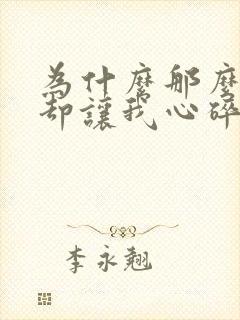 為什麼那麼
却讓我心碎
李永翹